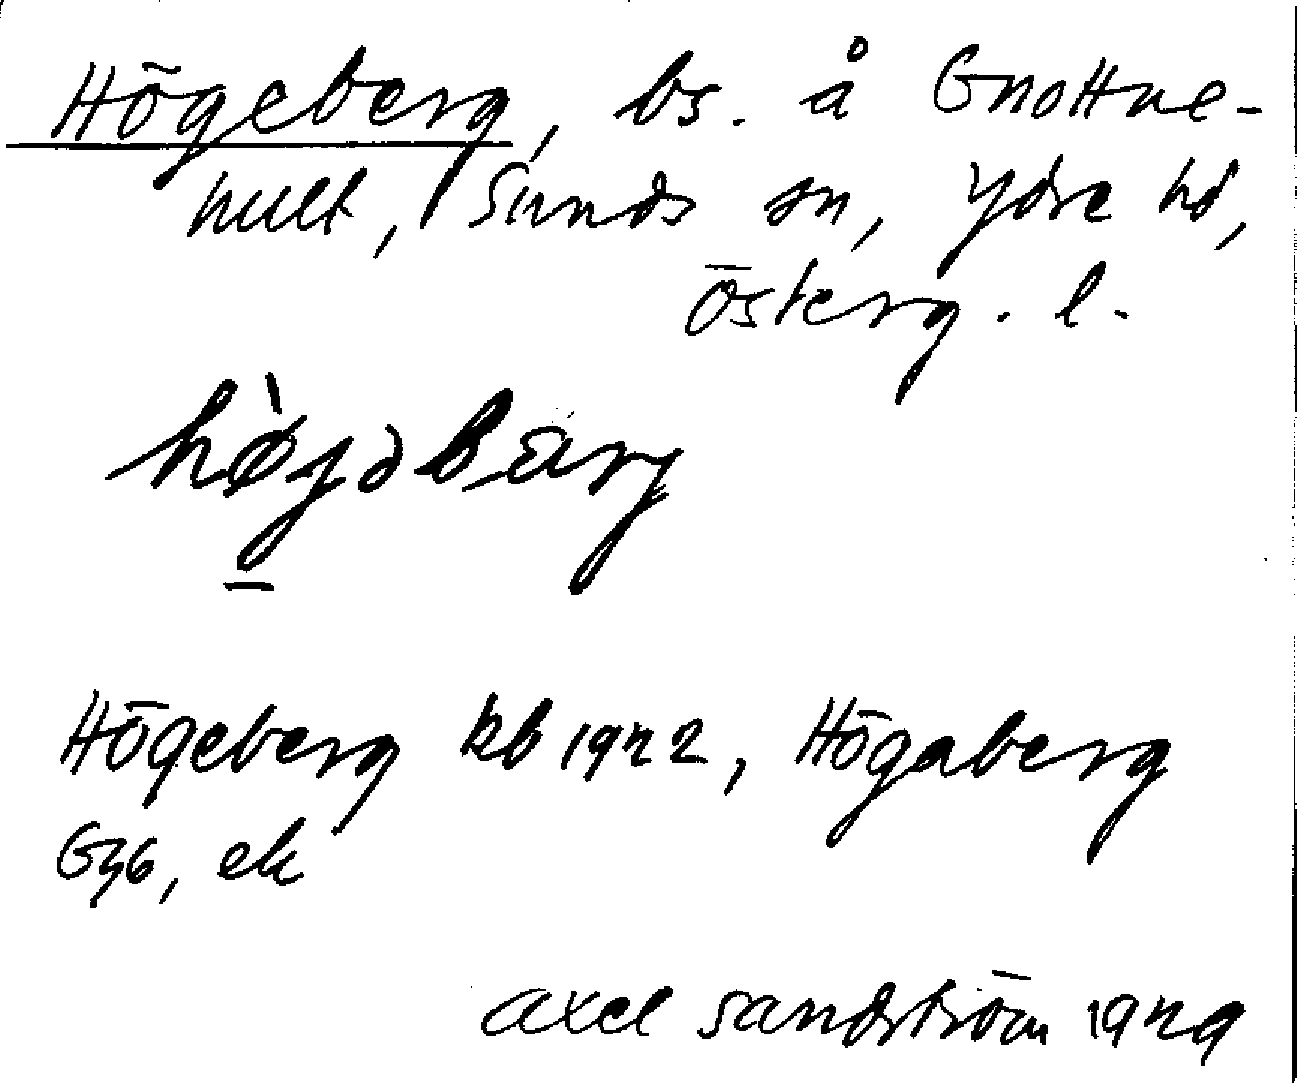 Högeberg, bs. å Gnottne-
hult, Sunds sn, Ydre hd,
Österg. l.
hø̀jəbärj
Högeberg kb 1942, Högaberg
G36, ek
Axel Sandström 1949